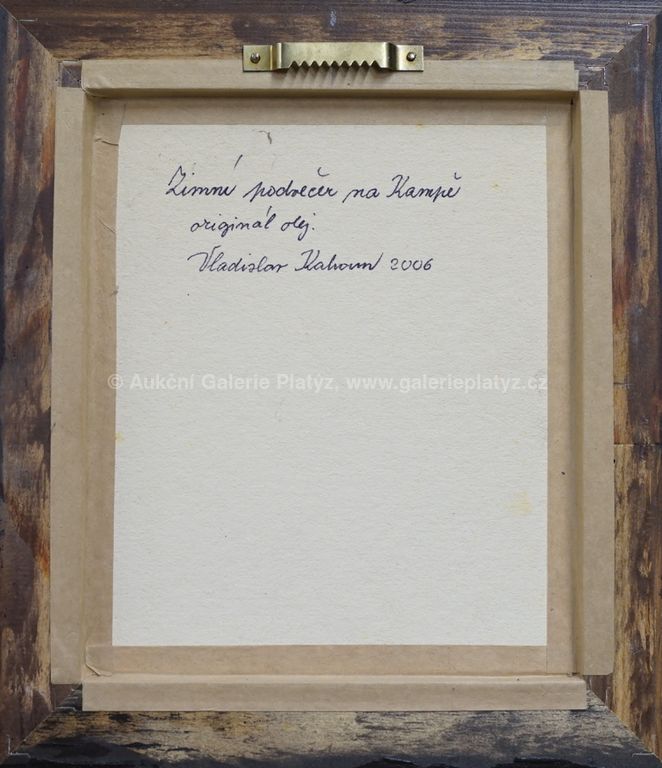 Zimní podvečer na Kampě
originál olej.
Vladislav Kahoun 2006
© Aukční Galerie Platýz, www.galerieplatyz.cz